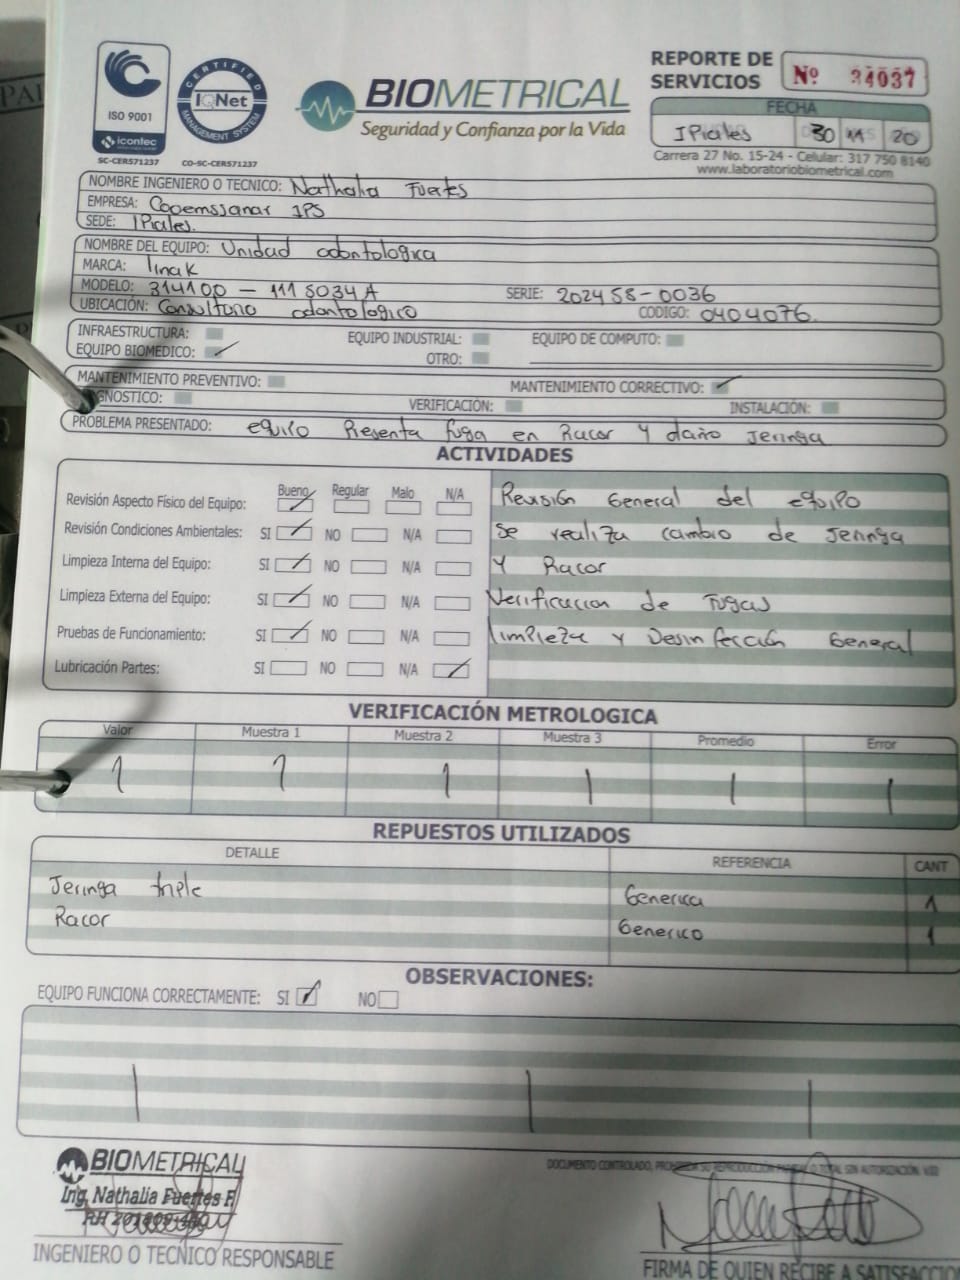 ISO 9001
icontec
SC-CER571237
CERTIFIED
IQNet
MANAGEMENT SYSTEM
CO-SC-CER571237
BIOMETRICAL
Seguridad y Confianza por la Vida
REPORTE DE SERVICIOS Nº 34037
FECHA
IPiales 30 11 20
Carrera 27 No. 15-24 - Celular: 317 750 8140
www.laboratoriobiometrical.com
NOMBRE INGENIERO O TECNICO: Nathalia Fuertes
EMPRESA: Cooemssanar IPS
SEDE: IPiales.
NOMBRE DEL EQUIPO: Unidad odontologica
MARCA: linak
MODELO: 314100 - 1115034A SERIE: 202458-0036
UBICACIÓN: Consultorio odontologico CODIGO: 0404076
INFRAESTRUCTURA: EQUIPO INDUSTRIAL: EQUIPO DE COMPUTO:
EQUIPO BIOMEDICO: OTRO:
MANTENIMIENTO PREVENTIVO: MANTENIMIENTO CORRECTIVO:
GNOSTICO: VERIFICACIÓN: INSTALACIÓN:
PROBLEMA PRESENTADO: equipo Presenta fuga en Racor y daño Jeringa
ACTIVIDADES
Bueno Regular Malo N/A
Revisión Aspecto Físico del Equipo:
Revisión Condiciones Ambientales: SI NO N/A
Limpieza Interna del Equipo: SI NO N/A
Limpieza Externa del Equipo: SI NO N/A
Pruebas de Funcionamiento: SI NO N/A
Lubricación Partes: SI NO N/A
Revisión General del equipo
Se realiza cambio de Jeringa
y Racor
Verificacion de Fugas
limpieza y Desinfección General
VERIFICACIÓN METROLOGICA
Valor Muestra 1 Muestra 2 Muestra 3 Promedio Error
REPUESTOS UTILIZADOS
DETALLE REFERENCIA CANT
Jeringa triple Generica 1
Racor Generico 1
OBSERVACIONES:
EQUIPO FUNCIONA CORRECTAMENTE: SI NO
BIOMETRICAL
Ing. Nathalia Fuertes F
INGENIERO O TECNICO RESPONSABLE
DOCUMENTO CONTROLADO, SU REPRODUCCIÓN TOTAL SIN AUTORIZACIÓN
FIRMA DE QUIEN RECIBE A SATISFACCION